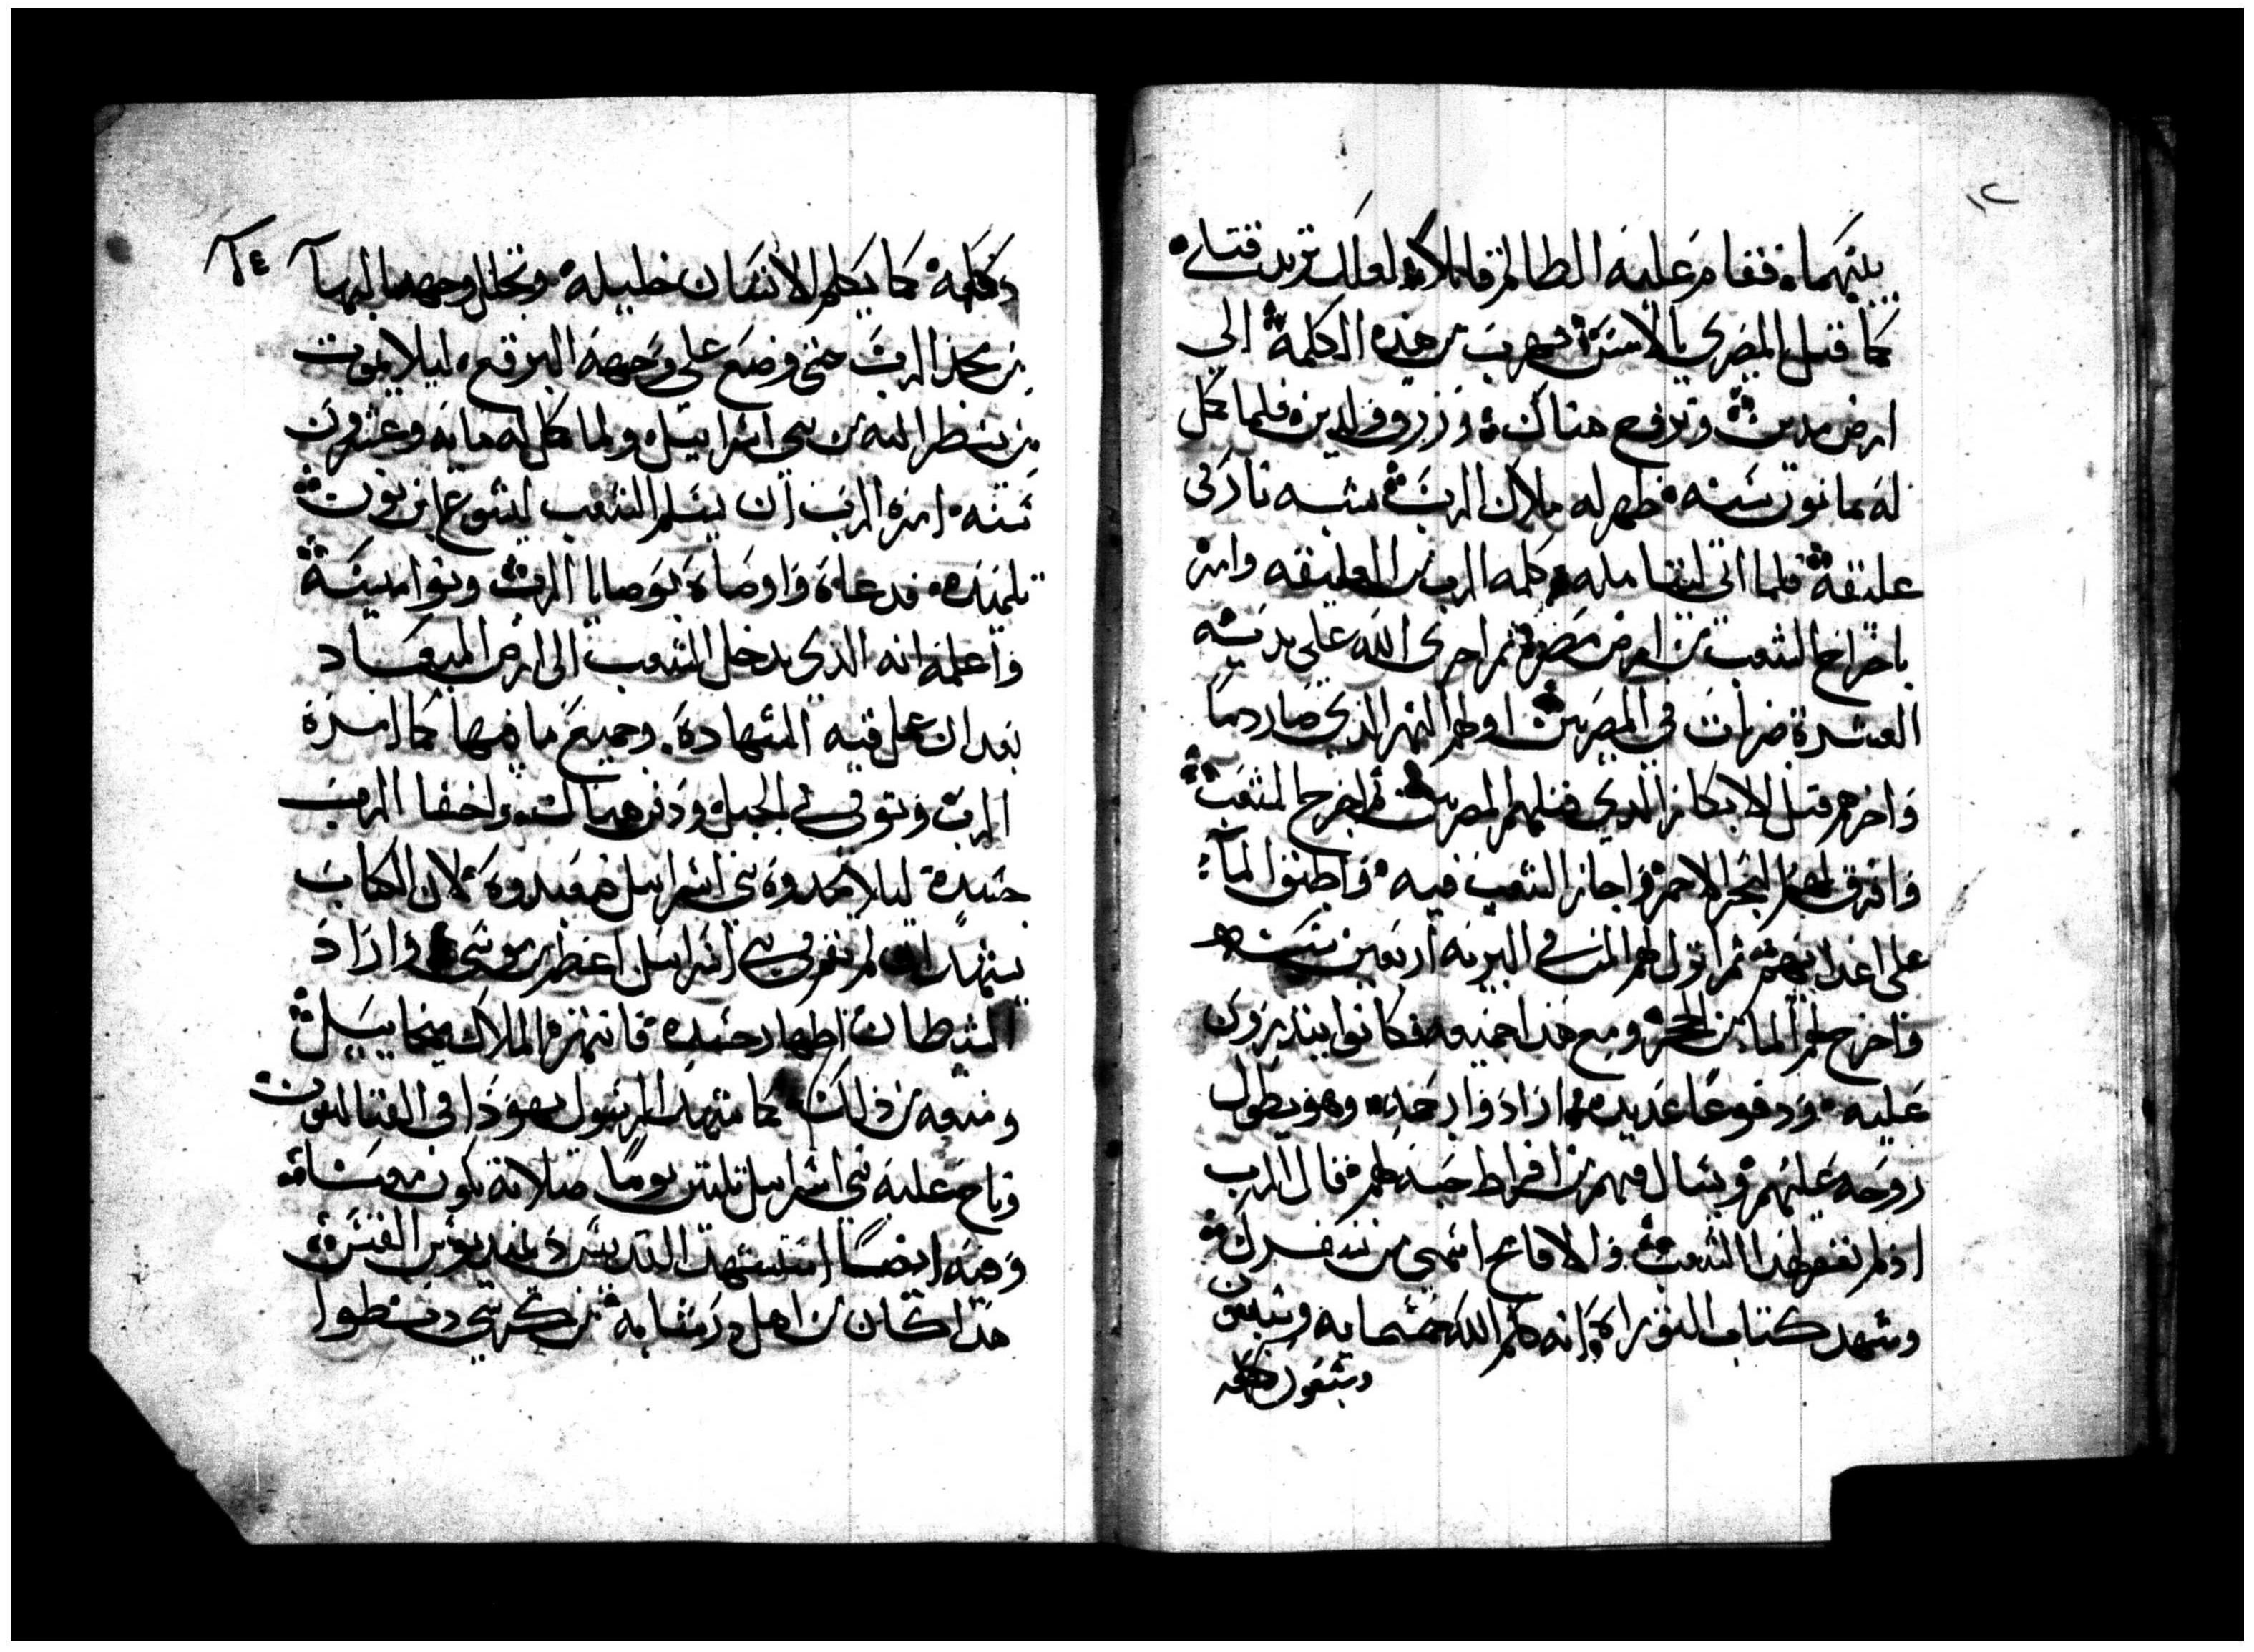 ١٢
بينهما، فقام عليه الظالم قايلا لعلك تريد قتلي
كما قتل المصري بالامس فهرب من هذه الكلمة الي
ارض مدين وتزوج هناك، ورزق ولدين، فلما كمل
له ثمانون سنه ظهر له ملاك الرب شبه نار في
عليقة فلما اتى ليتامله كلمه الرب من العليقه وامره
باخراج الشعب من ارض مصر ثم اجرى الله علي يديه
العشرة ضربات في المصريين اولهم النهر الذي صار دمًا
واخرهم قتل الابكار الذي قتلهم المصريين ثم اخرج الشعب
وافرق لهم البحر الاحمر واجاز الشعب فيه واطبق الماء
على اعدايهم ثم انزل لهم المن في البريه اربعين سنه
واخرج لهم الماء من الحجر ومع هذا جميعه فكانوا يتذمرون
عليه ودفوعًا عديده ارادوا رجمه، وهو يطول
روحه عليهم ويسال فيهم من افراط حبه لهم فقال للرب
اذا لم تغفر لهذا الشعب والا فامح اسمي من سفرك
وشهد كتاب التوراة انه كلم الله خمسمايه وسبعون
وسبعون كلمه
١٤
كلمة كما يكلم الانسان خليله وتجلل وجهه بالبها
من مجد الرب حتى وضع على وجهه البرقع، ليلا يموت
من ينظر اليه من بني اسراييل، ولما كمل له مايه وعشرون
سنه، امره الرب ان يسلم الشعب ليشوع ابن نون
تلميذه، فدعاه واوصاه بوصايا الرب ونواميسه
واعلمه انه الذي يدخل الشعب الى ارض الميعاد
بعد ان عمل قبه الشهادة، وجميع ما فيها كما امره
الرب وتوفي في الجبل، ودفن هناك، واخفا الرب
جسده ليلا يجدوه بني اسراييل فيعبدوه، لان الكتاب
يشهد انه لم يقم في بني اسراييل اعظم من موسى واراد
الشيطان اظهار جسده فانتهره الملاك ميخاييل
ومنعه من ذلك كما شهد الرسول يهوذا في القتاليقون
وناح عليه بني اسراييل ثلثين يومًا صلاته تكون معنا
وفيه ايضًا استشهد القديس القس
هذا كان من اهل من كرسي دنطوا